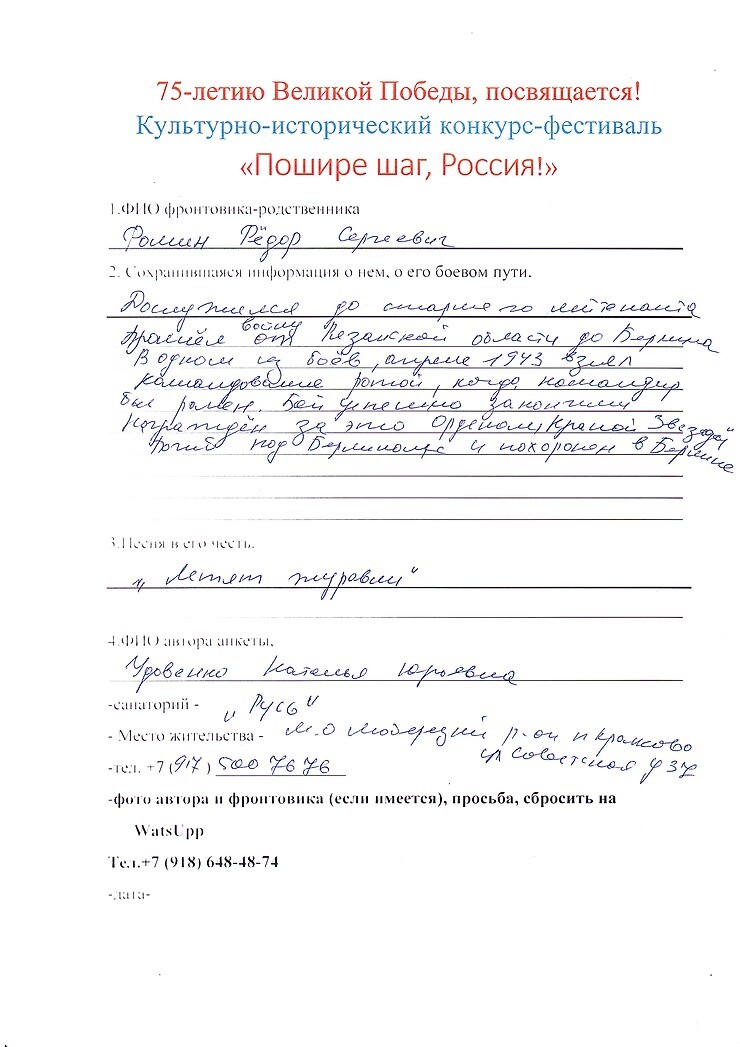 75-летию Великой Победы, посвящается!
Культурно-исторический конкурс-фестиваль
«Пошире шаг, Россия!»
1.ФИО фронтовика-родственника
Фомин Фёдор Сергеевич
2. Сохранившаяся информация о нем, о его боевом пути.
Дослужился до старшего лейтенанта
войну
Прошёл от Рязанской области до Берлина
В одном из боёв, апреле 1943 взял
командование ротой, когда командир
был ранен. Бой успешно закончили
Награждён за это Орденом „Красной Звезды"
Погиб под Берлином и похоронен в Берлине
3.Песня в его честь.
„ Летят журавли"
4.ФИО автора анкеты,
Удовенко Наталья Юрьевна
-санаторий - „ Русь"
- Место жительства - М.О Люберецкий р-он п Красково
ул Советская д 37
-тел. +7 (917) 500 76 76
-фото автора и фронтовика (если имеется), просьба, сбросить на
WatsUpp
Тел.+7 (918) 648-48-74
-дата-